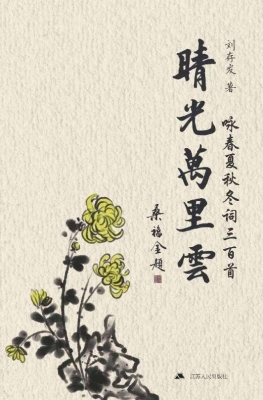 刘存发 著
晴光萬里雲
咏春夏秋冬词三百首
桑福金题
江苏人民出版社